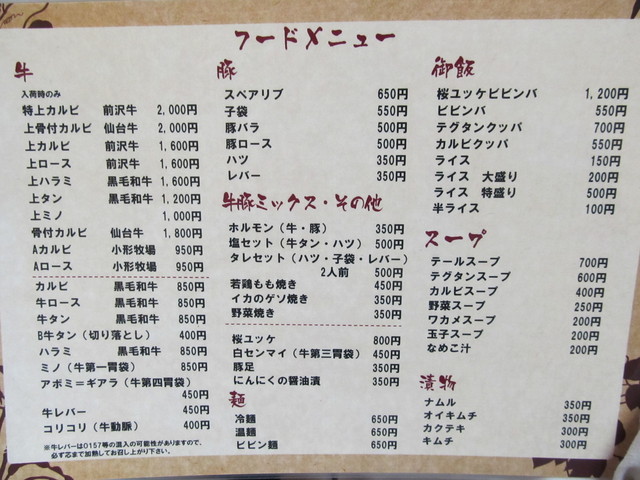 フードメニュー
牛
入荷時のみ
特上カルビ 前沢牛 2,000円
上骨付カルビ 仙台牛 2,000円
上カルビ 前沢牛 1,600円
上ロース 前沢牛 1,600円
上ハラミ 黒毛和牛 1,600円
上タン 黒毛和牛 1,200円
上ミノ 1,000円
骨付カルビ 仙台牛 1,800円
Aカルビ 小形牧場 950円
Aロース 小形牧場 950円
カルビ 黒毛和牛 850円
牛ロース 黒毛和牛 850円
牛タン 黒毛和牛 850円
B牛タン(切り落とし) 400円
ハラミ 黒毛和牛 850円
ミノ(牛第一胃袋) 850円
アボミ=ギアラ(牛第四胃袋)
450円
牛レバー 450円
コリコリ(牛動脈) 400円
※牛レバーはO157等の混入の可能性がありますので、
必ず芯まで加熱してお召し上がり下さい。
豚
スペアリブ 650円
子袋 550円
豚バラ 500円
豚ロース 500円
ハツ 350円
レバー 350円
牛豚ミックス・その他
ホルモン(牛・豚) 350円
塩セット(牛タン・ハツ) 500円
タレセット(ハツ・子袋・レバー)
2人前 500円
若鶏もも焼き 450円
イカのゲソ焼き 350円
野菜焼き 350円
桜ユッケ 800円
白センマイ(牛第三胃袋) 450円
豚足 350円
にんにくの醤油漬 350円
麺
冷麺 650円
温麺 650円
ビビン麺 650円
御飯
桜ユッケビビンバ 1,200円
ビビンバ 550円
テグタンクッパ 700円
カルビクッパ 550円
ライス 150円
ライス 大盛り 200円
ライス 特盛り 500円
半ライス 100円
スープ
テールスープ 700円
テグタンスープ 600円
カルビスープ 400円
野菜スープ 250円
ワカメスープ 200円
玉子スープ 200円
なめこ汁 200円
漬物
ナムル 350円
オイキムチ 350円
カクテキ 300円
キムチ 300円